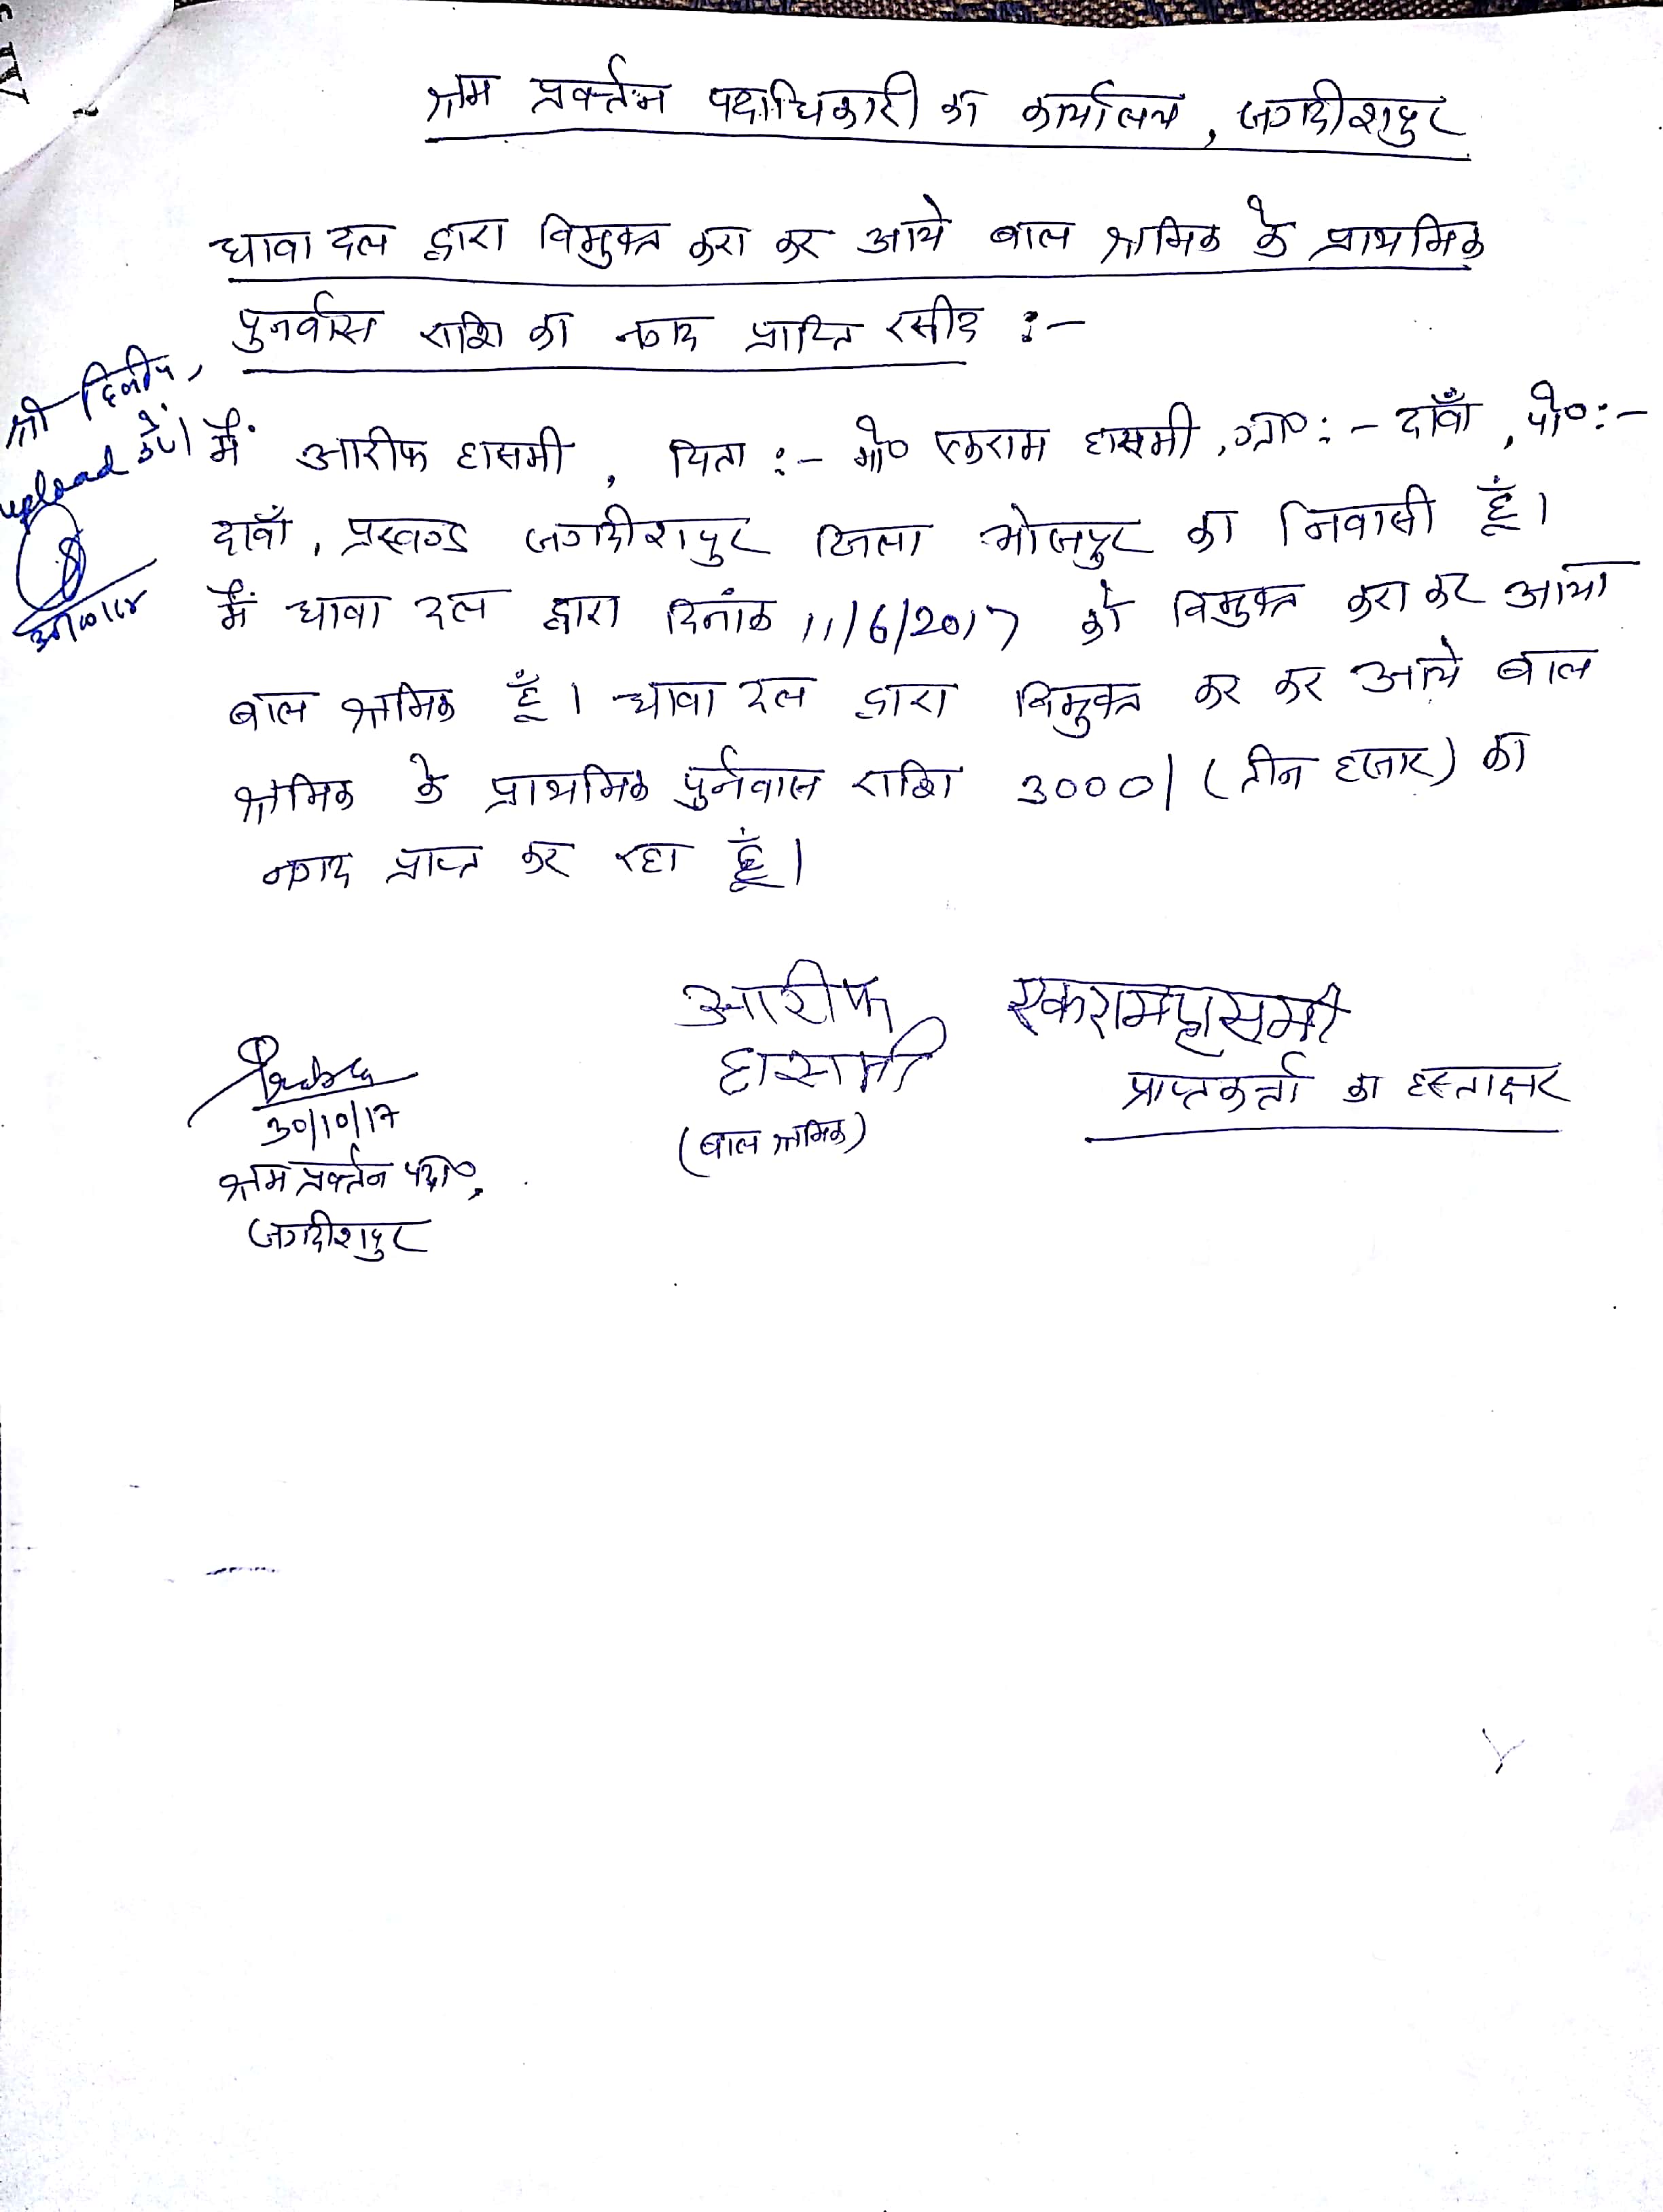 श्रम प्रवर्त्तन पदाधिकारी का कार्यालय, जगदीशपुर
धावा दल द्वारा विमुक्त करा कर आये बाल श्रमिक के प्राथमिक
पुनर्वास राशि का नगद प्राप्ति रसीद :-
श्री दिलीप,
upload करें।
मैं आरीफ हासमी, पिता :- मो० एकराम हासमी, ग्रा० :- दाँवा, पो० :-
दावाँ, प्रखण्ड जगदीशपुर जिला भोजपुर का निवासी हूँ।
मैं धावा दल द्वारा दिनांक 11/6/2017 को विमुक्त करा कर आया
बाल श्रमिक हूँ। धावा दल द्वारा विमुक्त कर कर आये बाल
श्रमिक के प्राथमिक पुर्नवास राशि 3000/ (तीन हजार) का
नगद प्राप्त कर रहा हूँ।
आरीफ एकराम हासमी
हासमी प्राप्तकर्त्ता का हस्ताक्षर
(बाल श्रमिक)
30/10/17
श्रम प्रवर्त्तन पदा०,
जगदीशपुर